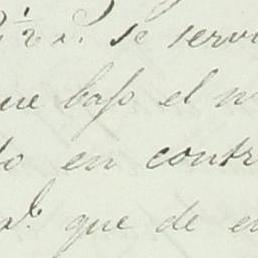 se servi
que bajo el
to en contr
que de en